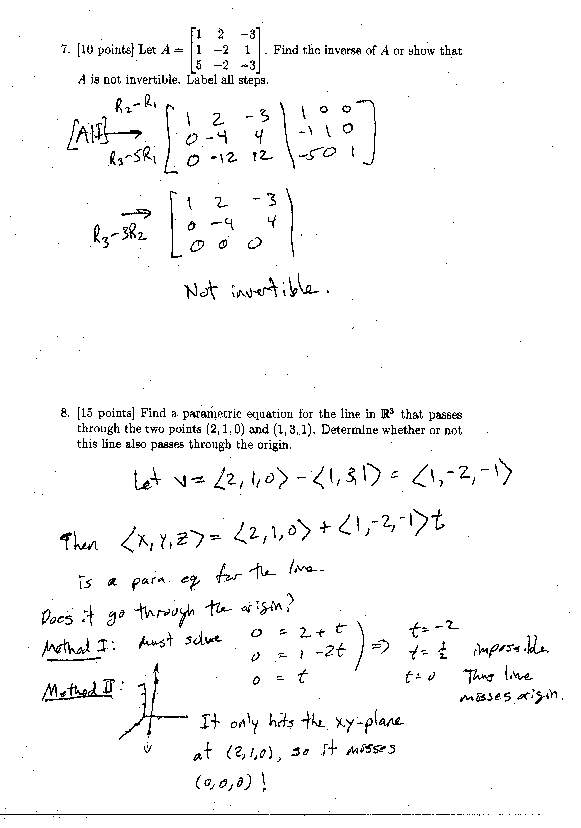 7. [10 points] Let A = [1 2 -3; 1 -2 1; 5 -2 -3]. Find the inverse of A or show that
A is not invertible. Label all steps.
[A|I] R2-R1 R3-5R1 → [1 2 -3 | 1 0 0; 0 -4 4 | -1 1 0; 0 -12 12 | -5 0 1]
→ R3-3R2 [1 2 -3 | ; 0 -4 4 | ; 0 0 0 | ]
Not invertible.
8. [15 points] Find a parametric equation for the line in ℝ³ that passes
through the two points (2, 1, 0) and (1, 3, 1). Determine whether or not
this line also passes through the origin.
Let v = <2,1,0> - <1,3,1> = <1,-2,-1>
Then <x,y,z> = <2,1,0> + <1,-2,-1>t
is a para. eq for the line.
Does it go through the origin?
Method I: must solve 0 = 2 + t ⇒ t = -2
0 = 1 - 2t t = 1/2 impossible.
0 = t t = 0 Thus line
misses origin.
Method II:
It only hits the xy-plane
at (2,1,0), so it misses
(0,0,0) !